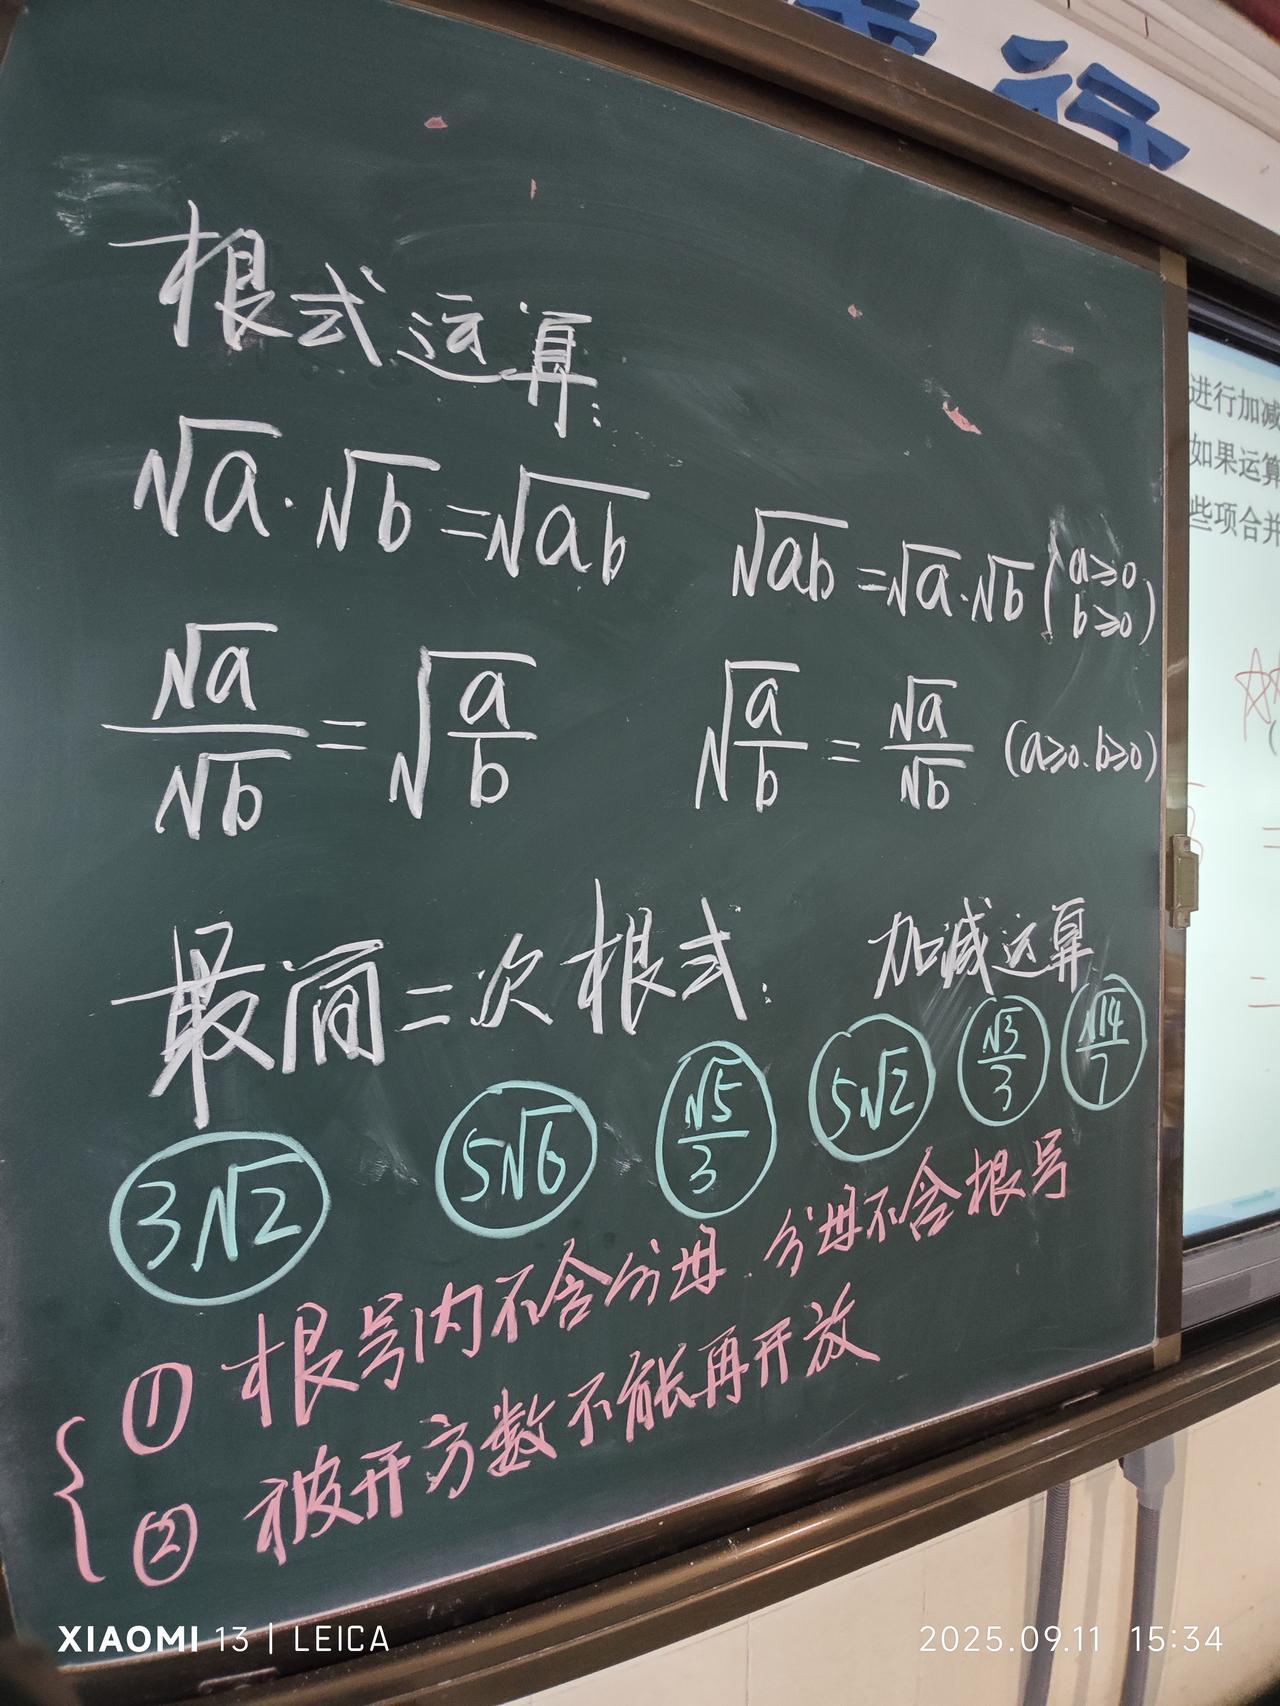 行
根式运算:
√a·√b=√ab
√ab=√a·√b (a≥0 b≥0)
√a/√b=√(a/b)
√(a/b)=√a/√b (a≥0.b≥0)
最简二次根式:
加减运算
3√2 5√6 √5/3 5√2 √3/3 √14/7
①根号内不含分母.分母不含根号
②被开方数不能再开放
进行加减
如果运算
些项合并
XIAOMI 13 | LEICA
2025.09.11 15:34